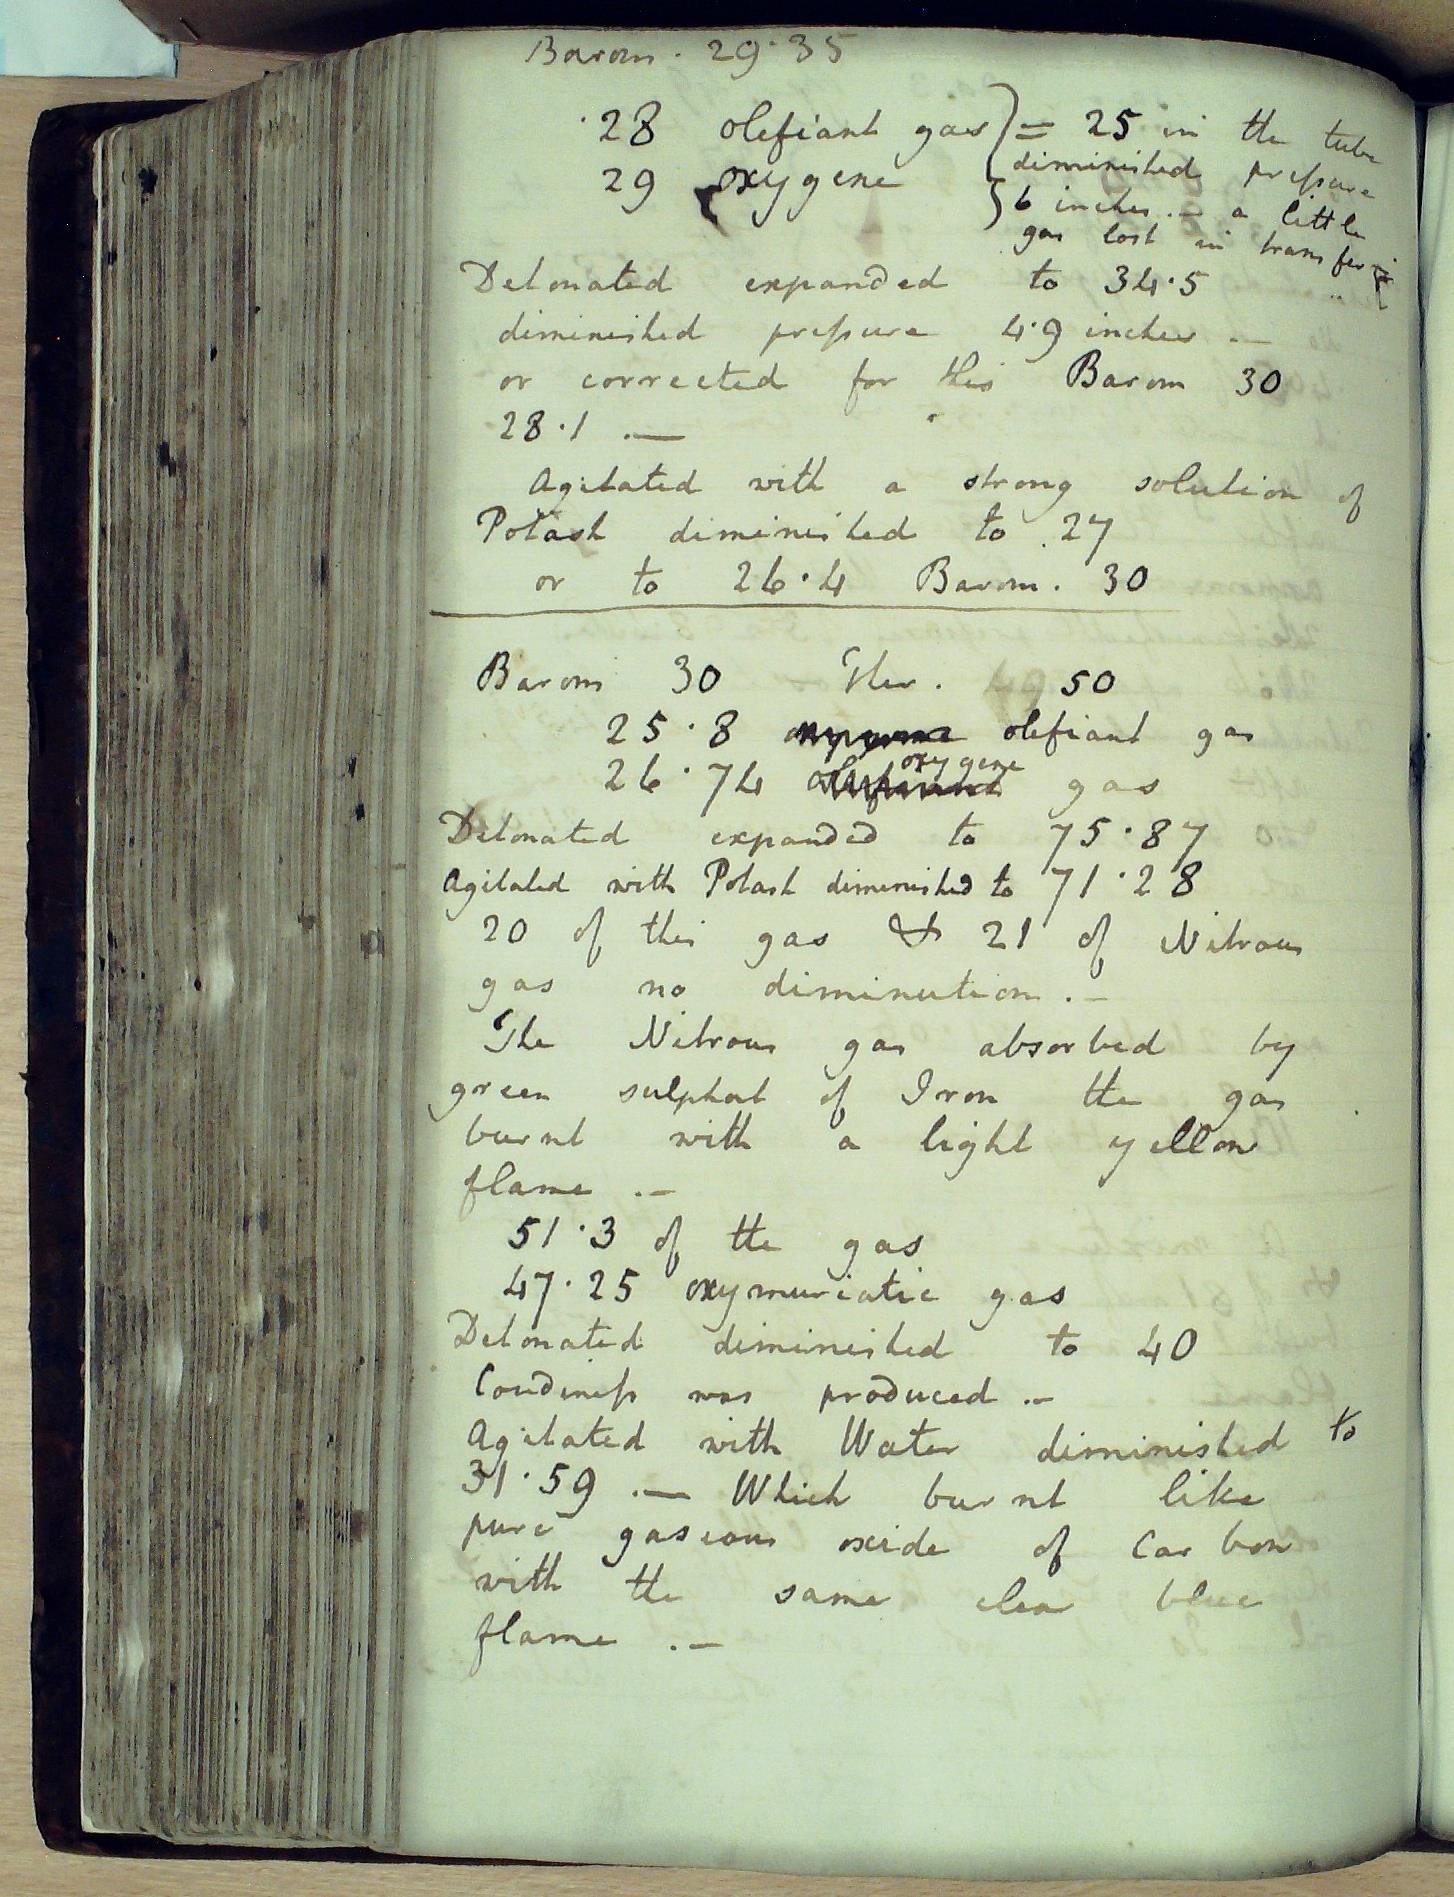 Barom. 29·35
·28 olefiant gas } = 25 in the tube
29 oxygene } diminished pressure
6 inches .— a little
gas lost in transfer
Detonated expanded to 34·5
diminished pressure 4·9 inches .—
or corrected for this Barom 30
28·1 .—
Agitated with a strong solution of
Potash diminished to 27
or to 26·4 Barom. 30
Barom 30 Ther. 50
25·8 oxygene olefiant gas
oxygene
26·74 olefiant gas
Detonated expanded to 75·87
Agitated with Potash diminished to 71·28
20 of this gas & 21 of Nitrous
gas no diminution .—
The Nitrous gas absorbed by
green sulphat of Iron the gas
burnt with a light yellow
flame .—
51·3 of the gas
47·25 oxymuriatic gas
Detonated diminished to 40
Coudiness was produced .—
Agitated with Water diminished to
31·59 .— Which burnt like
pure gaseous oxide of Carbon
with the same clear blue
flame .—